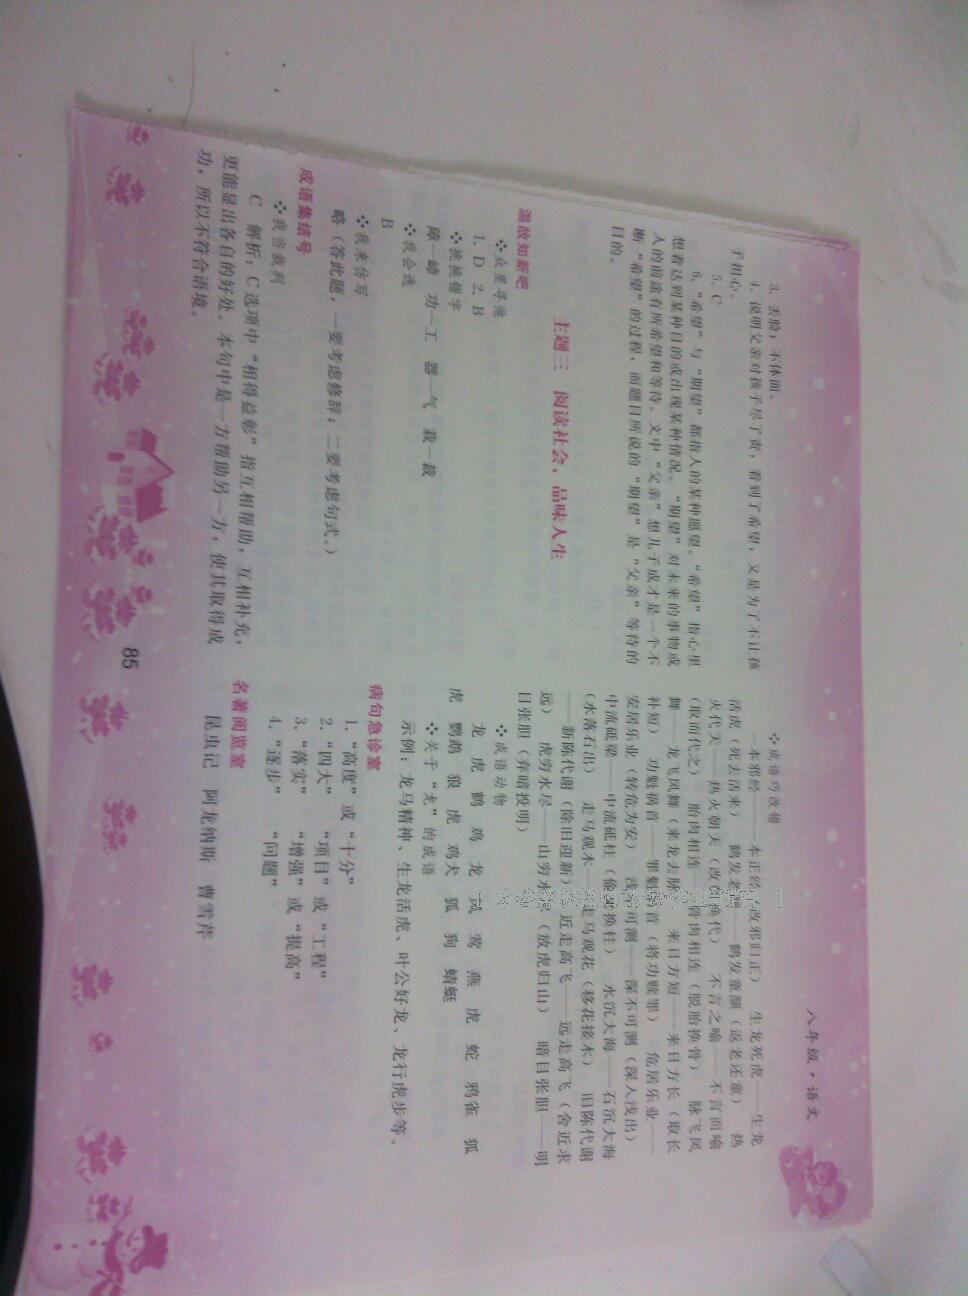 八年级·语文
3. 丢脸，不体面。
4. 说明父亲对孩子尽了责，看到了希望，又是为了不让孩
子担心。
5. C
6. “希望”与“期望”都指人的某种愿望。“希望”指心里
想着达到某种目的或出现某种情况。“期望”对未来的事物或
人的前途有所希望和等待。文中“父亲”想儿子成才是一个不
断“希望”的过程，而题目所说的“期望”是“父亲”等待的
目的。
主题三 阅读社会，品味人生
温故知新吧
❖众里寻他
1. D 2. B
❖挑挑错字
障—嶂 功—工 器—气 裁—裁
❖我会选
B
❖我来仿写
略（答此题，一要考虑修辞；二要考虑句式。）
成语集结号
❖我当裁判
C 解析：C选项中“相得益彰”指互相帮助，互相补充，
更能显出各自的好处。本句中是一方帮助另一方，使其取得成
功，所以不符合语境。
❖成语巧改错
一本邪经——一本正经（改邪归正） 生龙死虎——生龙
活虎（死去活来） 鹤发老颜——鹤发童颜（返老还童） 热
火代天——热火朝天（改朝换代） 不言之喻——不言而喻
（取而代之） 胎肉相连——骨肉相连（脱胎换骨） 脉飞凤
舞——龙飞凤舞（来龙去脉） 来日方短——来日方长（取长
补短） 功魁祸首——罪魁祸首（将功赎罪） 危居乐业——
安居乐业（转危为安） 浅不可测——深不可测（深入浅出）
中流砥梁——中流砥柱（偷梁换柱） 水沉大海——石沉大海
（水落石出） 走马观木——走马观花（移花接木） 旧陈代谢
——新陈代谢（除旧迎新） 近走高飞——远走高飞（舍近求
远） 虎穷水尽——山穷水尽（放虎归山） 暗目张胆——明
目张胆（弃暗投明）
❖成语动物
龙 虎 鹤 鸡 龙 凤 莺 燕 虎 蛇 鸦雀 狐
虎 鹦鹉 狼 虎 鸡犬 狐 狗 蜻蜓
❖关于“龙”的成语
示例：龙马精神、生龙活虎、叶公好龙、龙行虎步等。
病句急诊室
1. “高度”或“十分”
2. “四大” “项目”或“工程”
3. “落实” “增强”或“提高”
4. “逐步” “问题”
名著阅览室
昆虫记 阿龙纳斯 曹雪芹
85